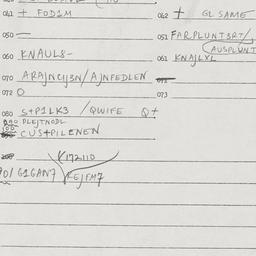 041 + FOD1M
042 + GL SAME
050 —
051 FARPLUNT3R7/
(AUSPLUNT
060 KNAUL8-
061 KNAJLXL
070 ARAJNCYJ3N/AJNFEDLEN
072 O
073
080 S+P1LK3 /QWIFE Q+
090 PLEJTNODL
100 CUS+PILENEN
K172110
901 G1GAN7
REJFM7